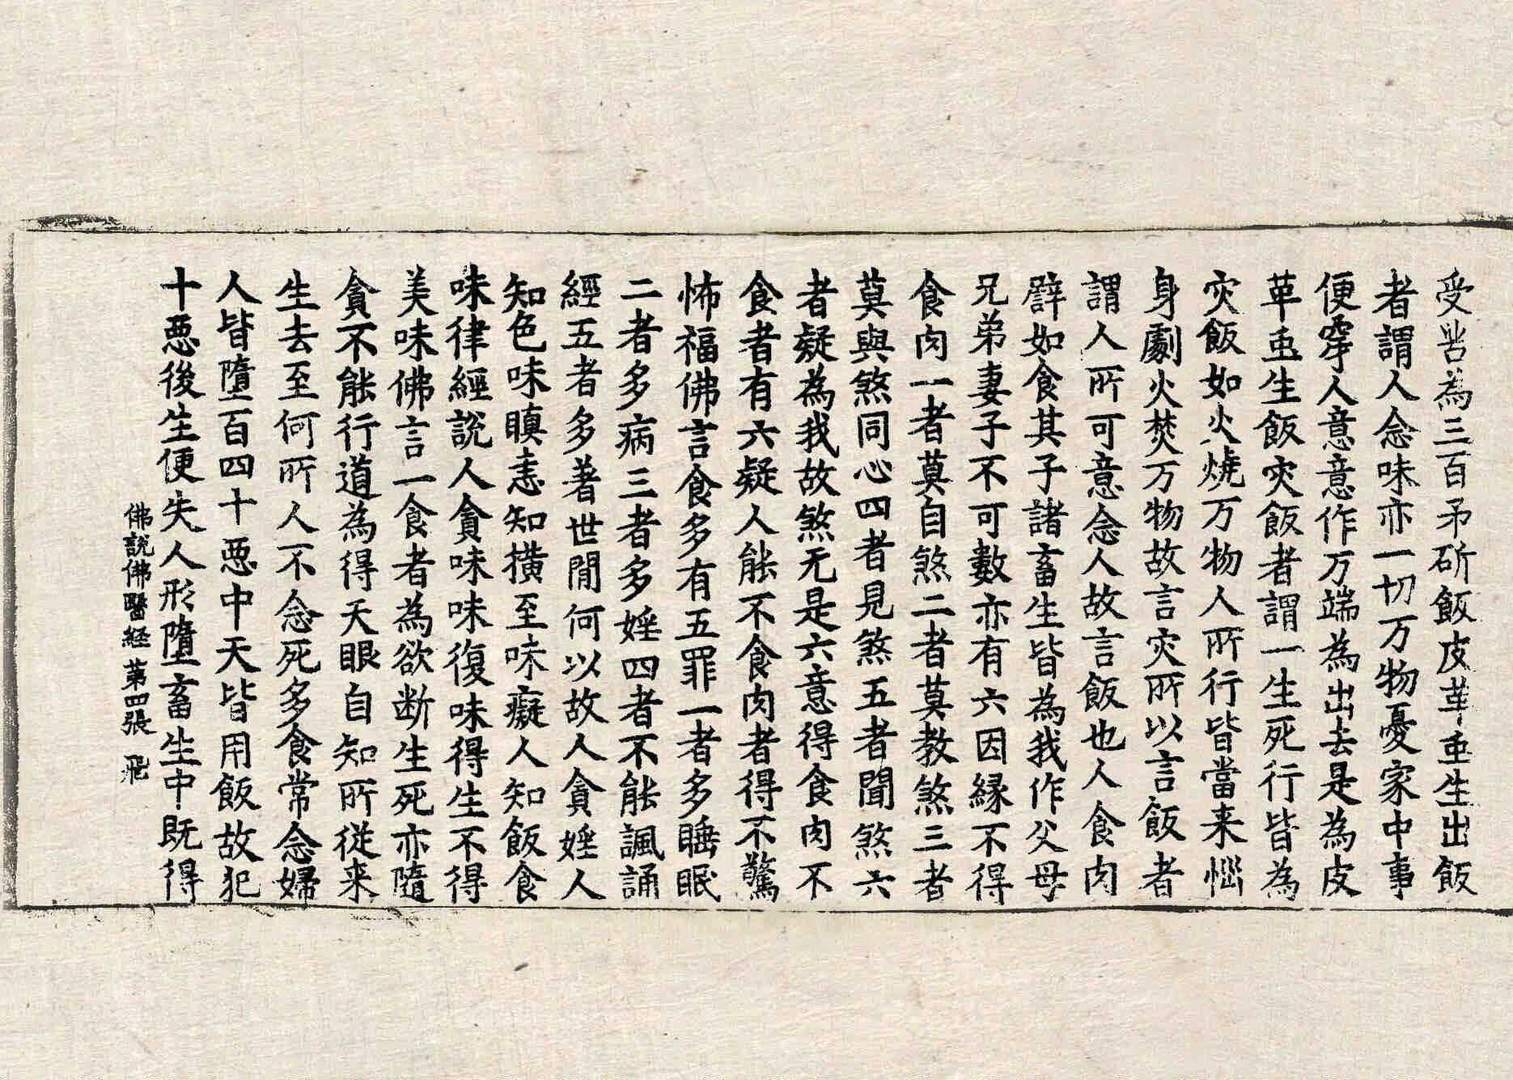 受苦為三百矛斫飯皮革𧈧生出飯
者謂人念味亦一切万物憂家中事
便穿人意意作万端為出去是為皮
革𧈧生飯灾飯者謂一生死行皆為
灾飯如火燒万物人所行皆當来惱
身劇火焚万物故言灾所以言飯者
謂人所可意念人故言飯也人食肉
譬如食其子諸畜生皆為我作父母
兄弟妻子不可數亦有六因縁不得
食肉一者莫自煞二者莫教煞三者
莫與煞同心四者見煞五者聞煞六
者疑為我故煞无是六意得食肉不
食者有六疑人能不食肉者得不驚
怖福佛言食多有五罪一者多睡眠
二者多病三者多婬四者不能諷誦
經五者多著世間何以故人貪婬人
知色味瞋恚知橫至味癡人知飯食
味律經說人貪味味復味得生不得
美味佛言一食者為欲断生死亦隨
貪不能行道為得天眼自知所從来
生去至何所人不念死多食常念婦
人皆墮百四十惡中夭皆用飯故犯
十惡後生便失人形墮畜生中既得
佛說佛醫經 第四張 飛